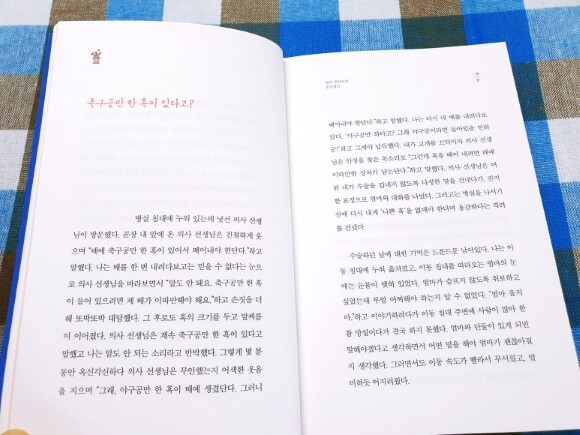 축구공만 한 혹이 있다고?
병실 침대에 누워 있는데 낯선 의사 선생
님이 방문했다. 곧장 내 앞에 온 의사 선생님은 친절하게 웃
으며 "배에 축구공만 한 혹이 있어서 떼어내야 한단다."하고
말했다. 나는 배를 한 번 내려다보고는 믿을 수 없다는 눈으
로 의사 선생님을 바라보면서 "말도 안 돼요. 축구공만 한 혹
이 들어 있으려면 제 배가 이따만해야 해요."하고 손짓을 더
해 또박또박 대답했다. 그 후로도 혹의 크기를 두고 말씨름
이 이어졌다. 의사 선생님은 계속 축구공만 한 혹이 있다고
말했고 나는 말도 안 되는 소리라고 반박했다. 그렇게 몇 분
동안 옥신각신하다 의사 선생님은 무안했는지 어색한 웃음
을 지으며 "그래, 야구공만 한 혹이 배에 생겼단다. 그러니
떼어내야 한단다."하고 말했다. 나는 다시 내 배를 내려다보
았다. '야구공만 하다고? 그래 야구공이라면 들어있을 만하
군!'하고 그제야 납득했다. 내가 고개를 끄덕이자 의사 선생
님은 안정을 찾은 목소리로 "그런데 혹을 떼어 내려면 배에
이따만한 상처가 남는단다."하고 말했다. 의사 선생님은 어
린 내가 수술을 겁내지 않도록 다정한 말을 건네다가, 진지
한 표정으로 엄마와 대화를 나눴다. 그러고는 병실을 나서기
전에 다시 내게 '나쁜 혹'을 없애야 한다며 용감하다는 격려
를 건넸다.
수술하던 날에 대한 기억은 드문드문 남아있다. 나는 이
동 침대에 누워 옮겨졌고, 이동 침대를 따라오는 엄마의 눈
에는 눈물이 맺혀 있었다. 엄마가 슬프지 않도록 위로하고
싶었는데 무얼 어찌해야 하는지 알 수 없었다. "엄마 울지
마."하고 이야기하려다가 이동 침대 주변에 사람이 많아 한
참 망설이다가 결국 하지 못했다. 엄마와 단둘이 있게 되면
말해야겠다고 생각하면서 어떤 말을 해야 엄마가 괜찮아질
지 생각했다. 그러면서도 이동 속도가 빨라서 무서웠고, 멀
미하듯 어지러웠다.